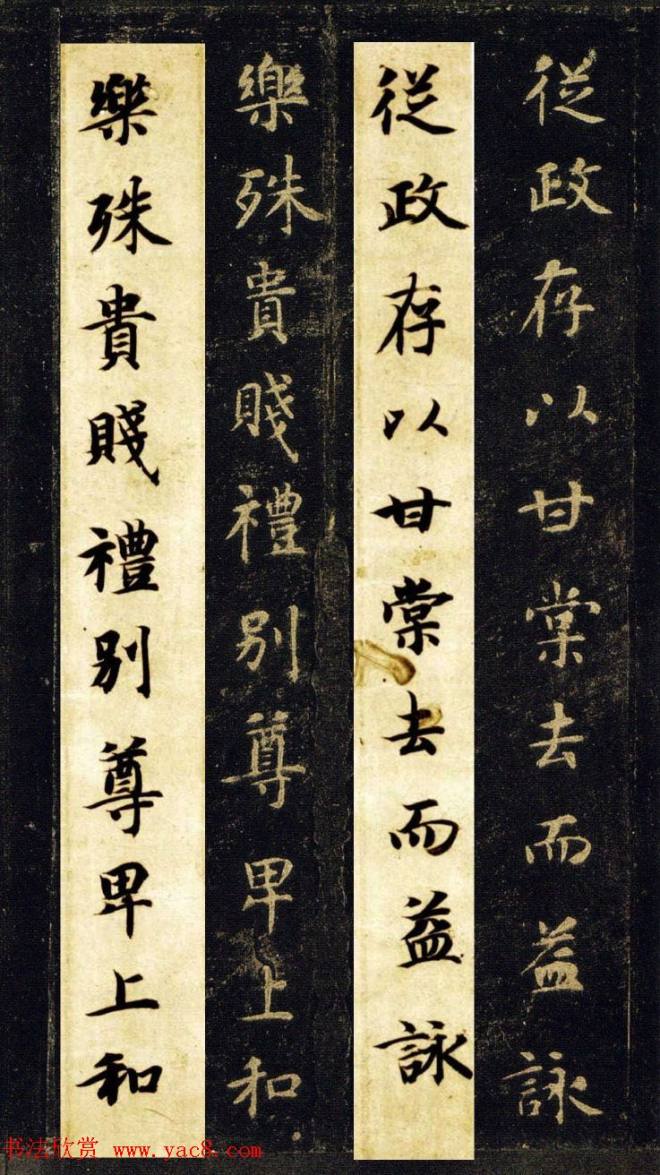 從政存以甘棠去而益詠
從政存以甘棠去而益詠
樂殊貴賤禮別尊卑上和
樂殊貴賤禮別尊卑上和
书法欣赏 www.yac8.com